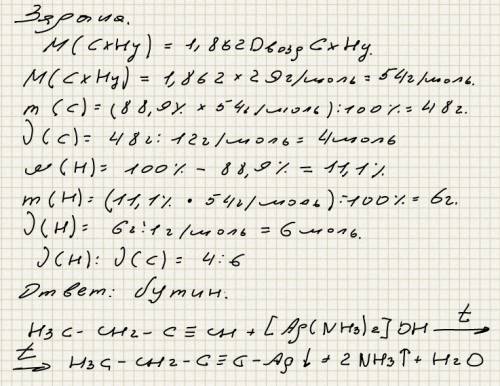 Задача.
M(CxHy) = 1,862 Dвозд CxHy.
M(CxHy) = 1,862 × 29г/моль = 54г/моль.
m(C) = (88,9% × 54г/моль):100% = 48г.
ν(C) = 48г: 12г/моль = 4моль
ω(H) = 100% - 88,9% = 11,1%
m(H) = (11,1% · 54г/моль):100% = 6г.
ν(H) = 6г:1г/моль = 6моль.
ν(H): ν(C) = 4:6
Ответ: бутин.
H3C - CH2 - C ≡ CH + [Ag(NH3)2]OH —t→
—t→ H3C - CH2 - C ≡ C - Ag↓ + 2NH3↑ + H2O